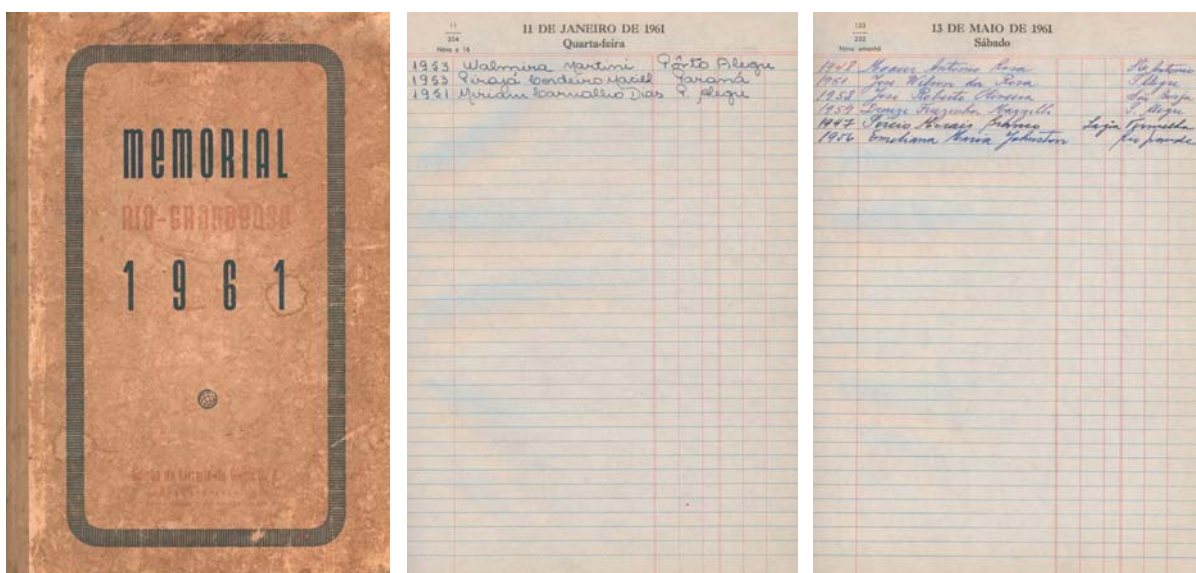 Clube do Guri
MEMORIAL
RIO-GRANDENSE
1961
11
354
Nova a 16
11 DE JANEIRO DE 1961
Quarta-feira
1953 Walmira Martini Pôrto Alegre
1953 Pirajá Cordeiro Maciel Paraná
1951 Miriam Carvalho Dias P. Alegre
133
232
Nova amanhã
13 DE MAIO DE 1961
Sábado
1948 Antonio Rosa Sto Antonio
1951 José Wilson da Rosa P. Alegre
1958 José Roberto Oliveira São Borja
1959 Denize Terezinha P. Alegre
1947 Morais Lagoa Vermelha
1956 Maria Johnston Rio Grande